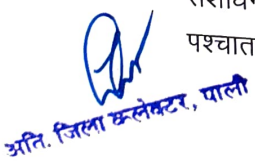 पश्चात
अति. जिला कलेक्टर, पाली